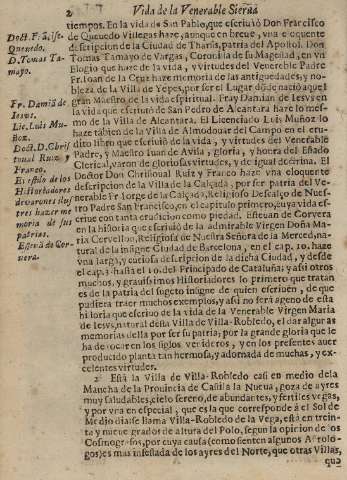 2 Vida de la Venerable Sierua
tiempos. En la vida de San Pablo, que escriuiò Don Francisco
de Queuedo Villegas haze, aunque en breue, vna eloquente
descripcion de la Ciudad de Tharsis, patria del Apostol. Don
Tomas Tamayo de Vargas, Coronista de su Magestad, en vn
Elogio que haze de la vida, y virtudes del Venerable Padre
Fr. Ioan de la Cruz haze memoria de las antiguedades, y nobleza
de la Villa de Yepes, por ser el Lugar dõde naciò aquel
gran Maestro de la vida espiritual. Fray Damian de Iesvs en
la vida que escriuiò de San Pedro de Alcantara haze lo mesmo
de la Villa de Alcantara. El Licenciado Luis Muñoz lo
haze tãbien de la Villa de Almodouar del Campo en el erudito
libro que escriuiò de la vida, y virtudes del Venerable
Padre, y Maestro Iuan de Avila, gloria, y honra del Estado
Clerical, varon de gloriosas virtudes, y de igual doctrina. El
Doctor Don Christoual Ruiz y Franco haze vna eloquente
descripcion de la Villa de la Calçada, por ser patria del Venerable
Fr. Iorge de la Calçada, Religioso Descalço de Nuestro
Padre San Francisco, en el capitulo primero, cuya vida escriue
con tanta erudicion como piedad. Esteuan de Corvera
en la historia que escriuiò de la admirable Virgen Doña Maria
Cervellon, Religiosa de Nuestra Señora de la Merced, natural
de la insigne Ciudad de Barcelona, en el cap. 10. haze
vna larga, y curiosa descripcion de la dicha Ciudad, y desde
el cap. 3 hasta el 10. del Principado de Cataluña; y assi otros
muchos, y grauissimos Historiadores lo primero que tratan
es de la patria del sugeto insigne de quien escriuen, de que
pudiera traer muchos exemplos, y assi no serà ageno de esta
historia que escriuo de la vida de la Venerable Virgen Maria
de Iesvs, natural desta Villa de Villa-Robledo, el dar algunas
memorias della por ser su patria; por la grande gloria que le
ha de tocar en los siglos venideros, y en los presentes auer
producido planta tan hermosa, y adornada de muchas, y excelentes
virtudes.
2 Està la Villa de Villa-Robledo casi en medio de la
Mancha de la Provincia de Castilla la Nueva, goza de ayres
muy saludables, cielo sereno, de abundantes, y fertiles vegas,
y por vna en especial, que es la que corresponde à el Sol de
Medio dia se llama Villa-Robledo de la Vega, està en treinta
y nueue grados de altura del Polo, segun la opinion de los
Cosmografos, por cuya causa (como sienten algunos Astrologos)
es mas infestada de los ayres del Norte, que otras Villas,
que
Doct. F. Frãcisc.
Queuedo.
D. Tomas Tamayo.
Fr. Damiã de
Iesvs.
Lic. Luis Muñoz.
Doct. D. Christoual
Ruiz, y
Franco.
Es estilo de los
Historiadores
de varones ilustres
hazer memoria
de sus
patrias.
Esteuã de Corvera.